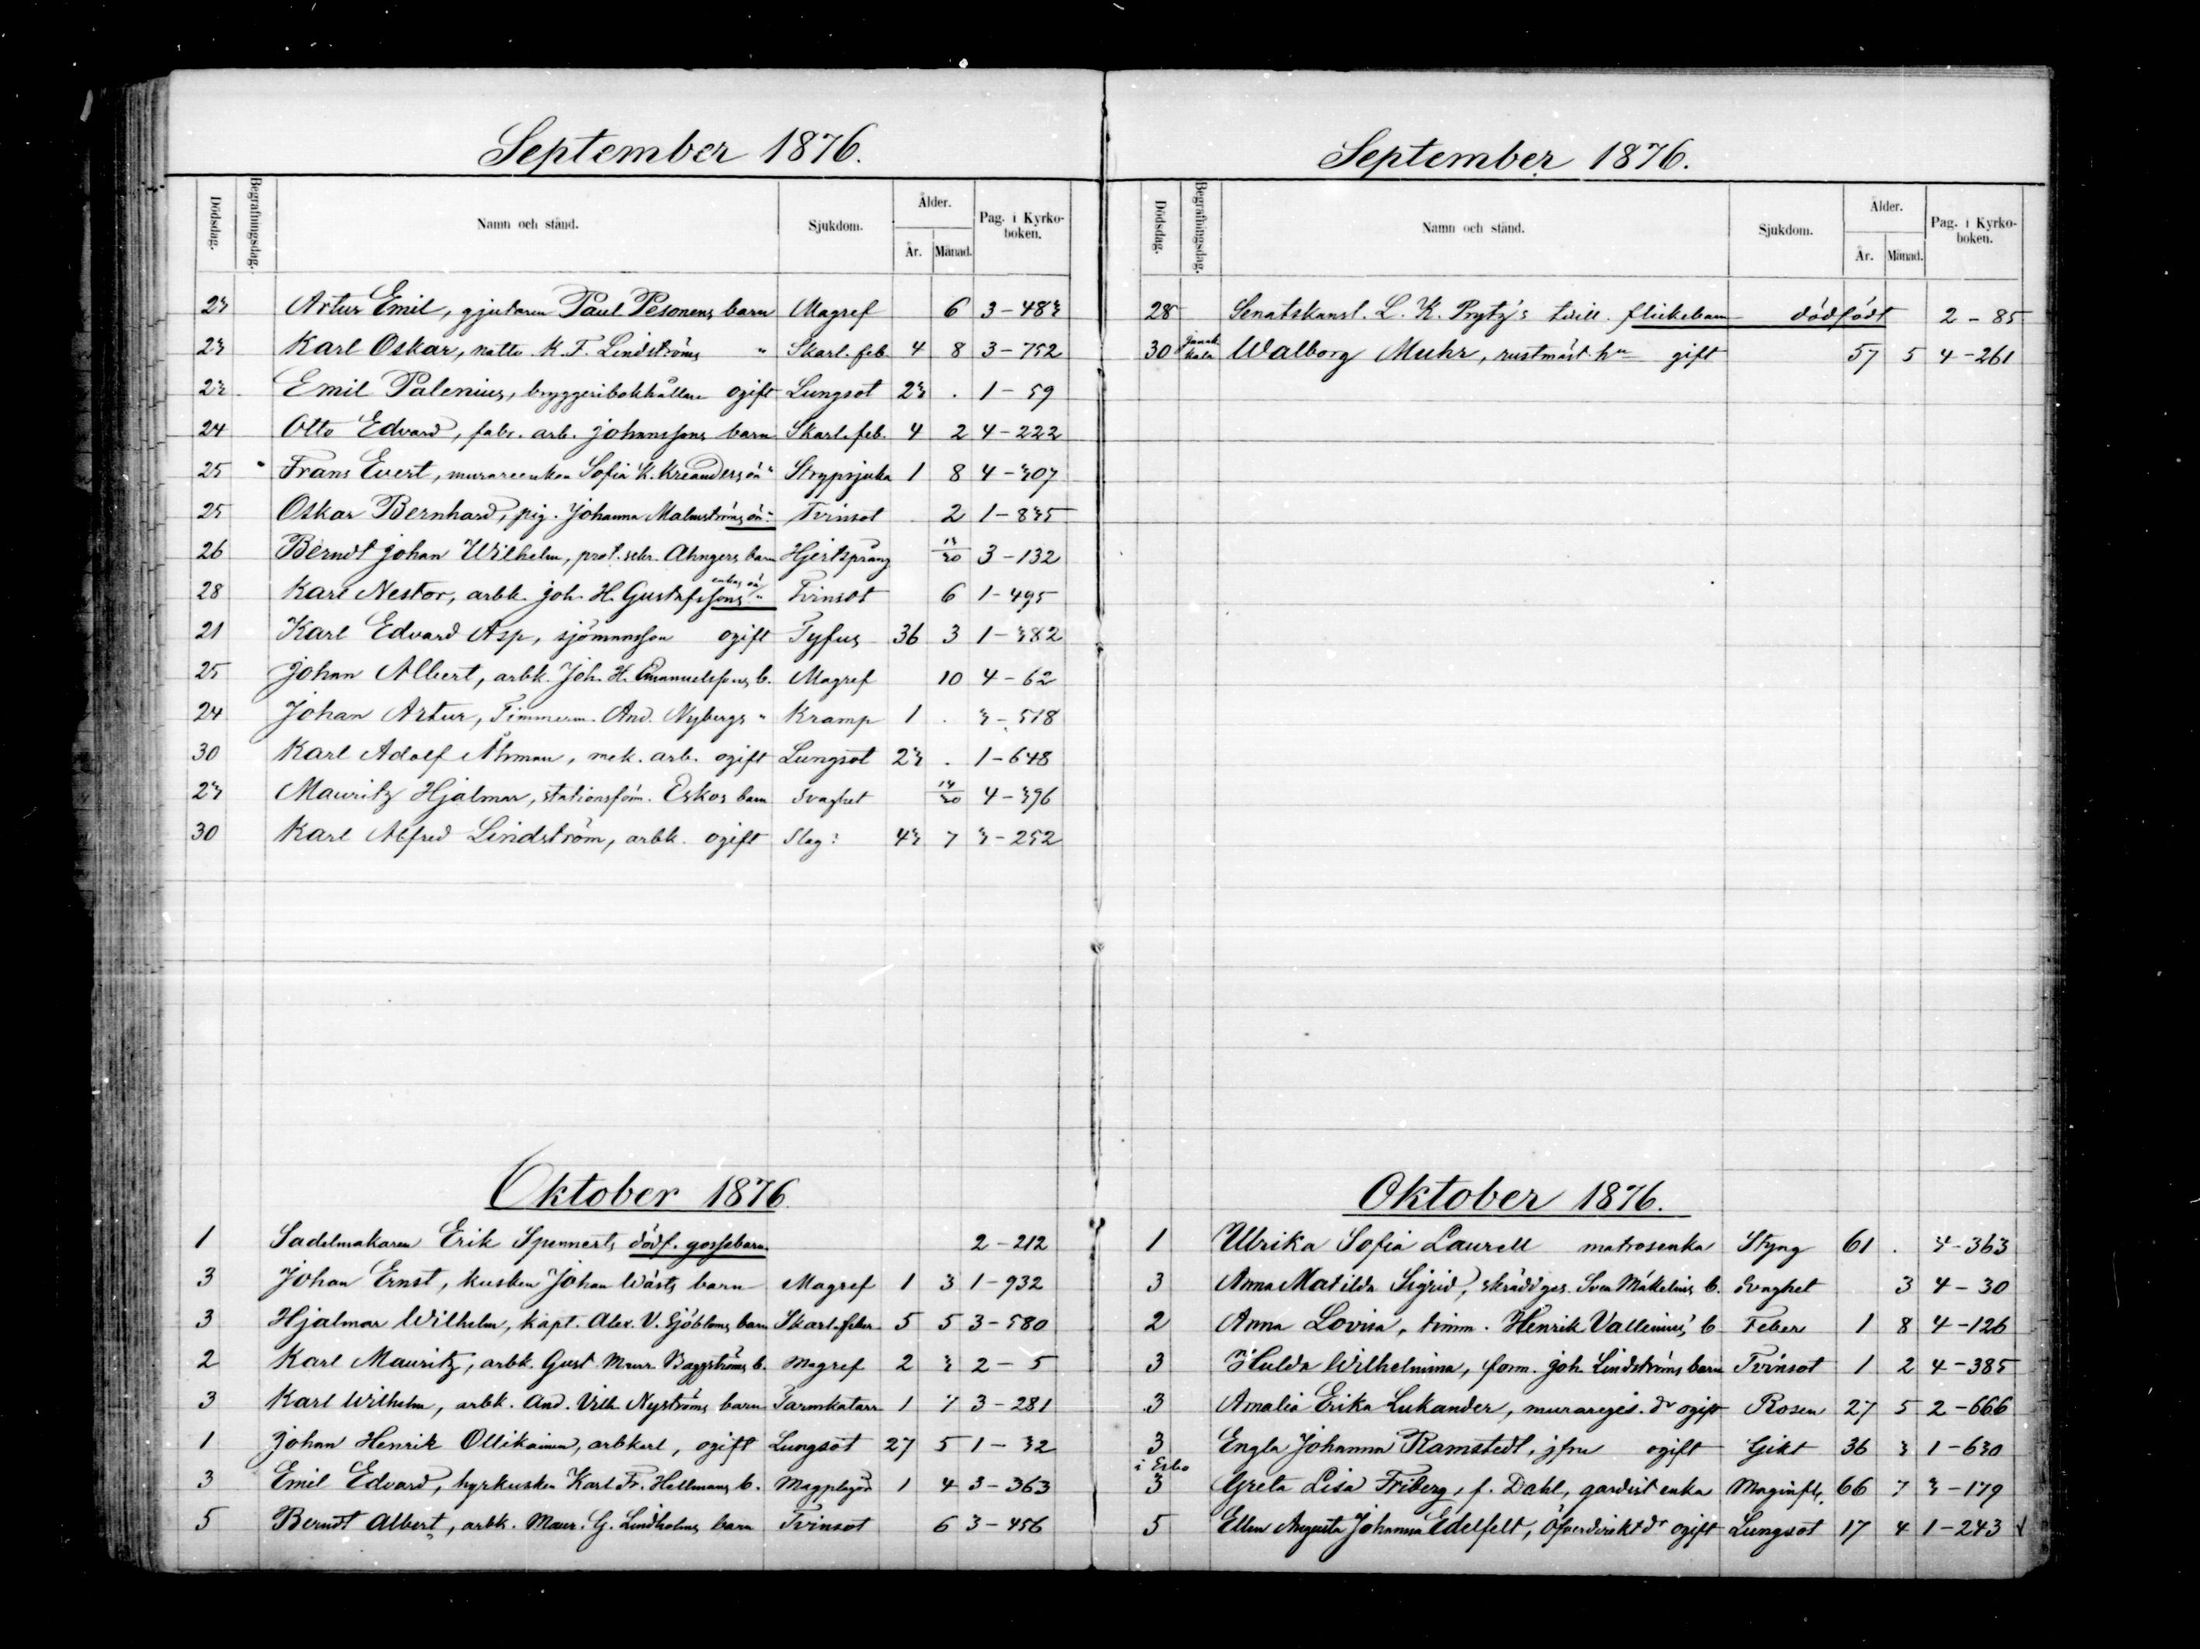 September 1876.
Dödsdag. Begrafningsdag. Namn och stånd. Sjukdom. Ålder. År. Månad. Pag. i Kyrkoboken.
23 Artur Emil, gjutaren Paul Pesonens barn Magref 6 3-483
23 Karl Oskar, K. F. Lindströms " Skarl. feb. 4 8 3-752
23 Emil Palenius, bryggeribokhållare ogift Lungsot 23 . 1-59
24 Otto Edvard, fabr. arb. Johanssons barn Skarl. feb. 4 2 4-222
25 Frans Evert, murareenkan Sofia K. Kreanders oä " Strypsjuka 1 8 4-307
25 Oskar Bernhard, pig. Johanna Malmströms oä " Tvinsot 2 1-835
26 Berndt Johan Wilhelm, prot. sekr. Ahngers barn Hjertsprång 3-132
28 Karl Nestor, arbk. Joh. H. Gustafssons enkas oä " Tvinsot 6 1-495
21 Karl Edvard Asp, sjömansson ogift Tyfus 36 3 1-382
25 Johan Albert, arbk. Joh. H. Emanuelssons b. Magref 10 4-62
24 Johan Artur, Timmerm. And. Nybergs " Kramp 1 . 3-518
30 Karl Adolf Åhman, mek. arb. ogift Lungsot 23 . 1-648
23 Mauritz Hjalmar, stationsföm. Eskos barn Svaghet 4-396
30 Karl Alfred Lindström, arbk. ogift Slag: 43 7 3-252
Oktober 1876.
1 Sadelmakaren Erik Spennerts dödf. gossebarn. 2-212
3 Johan Ernst, kusken Johan Wästs barn Magref 1 3 1-932
3 Hjalmar Wilhelm, kapt. Alex. V. Sjöbloms barn Skarl. feber 5 5 3-580
2 Karl Mauritz, arbk. Gust. Maur. Baggströms b. Magref 2 3 2-5
3 Karl Wilhelm, arbk. And. Vilh. Nyströms barn Tarmkatarr 1 7 3-281
1 Johan Henrik Ollikainen, arbkarl, ogift Lungsot 27 5 1-32
3 Emil Edvard, hyrkusken Karl Fr. Hellmans b. Magplågor 1 4 3-363
5 Berndt Albert, arbk. Maur. G. Lindholms barn Tvinsot 6 3-456
September 1876.
Dödsdag. Begrafningsdag. Namn och stånd. Sjukdom. Ålder. År. Månad. Pag. i Kyrkoboken.
28 Senatskansl. L. K. Prytz's tvill. flickebarn dödfödt 2-85
30 Janakkala Walborg Muhr, rustmäst. hu gift 57 5 4-261
Oktober 1876.
1 Ulrika Sofia Laurell matrosenka Styng 61 . 4-363
3 Anna Matilda Sigrid, skräddges. Sven Mäkelins b. Svaghet 3 4-30
2 Anna Lovisa, timm. Henrik Vallenius' b Feber 1 8 4-126
3 Hulda Wilhelmina, form. Joh. Lindströms barn Tvinsot 1 2 4-385
3 Amalia Erika Lukander, murareges. dr ogift Rosen 27 5 2-666
3 Engla Johanna Ramstedt, jfru ogift Gikt 36 3 1-630
i Esbo
3 Greta Lisa Friberg, f. Dahl, gardist enka Maginfl. 66 7 3-179
5 Ellen Augusta Johanna Edelfelt, Öfverdirekt dr ogift Lungsot 17 4 1-243